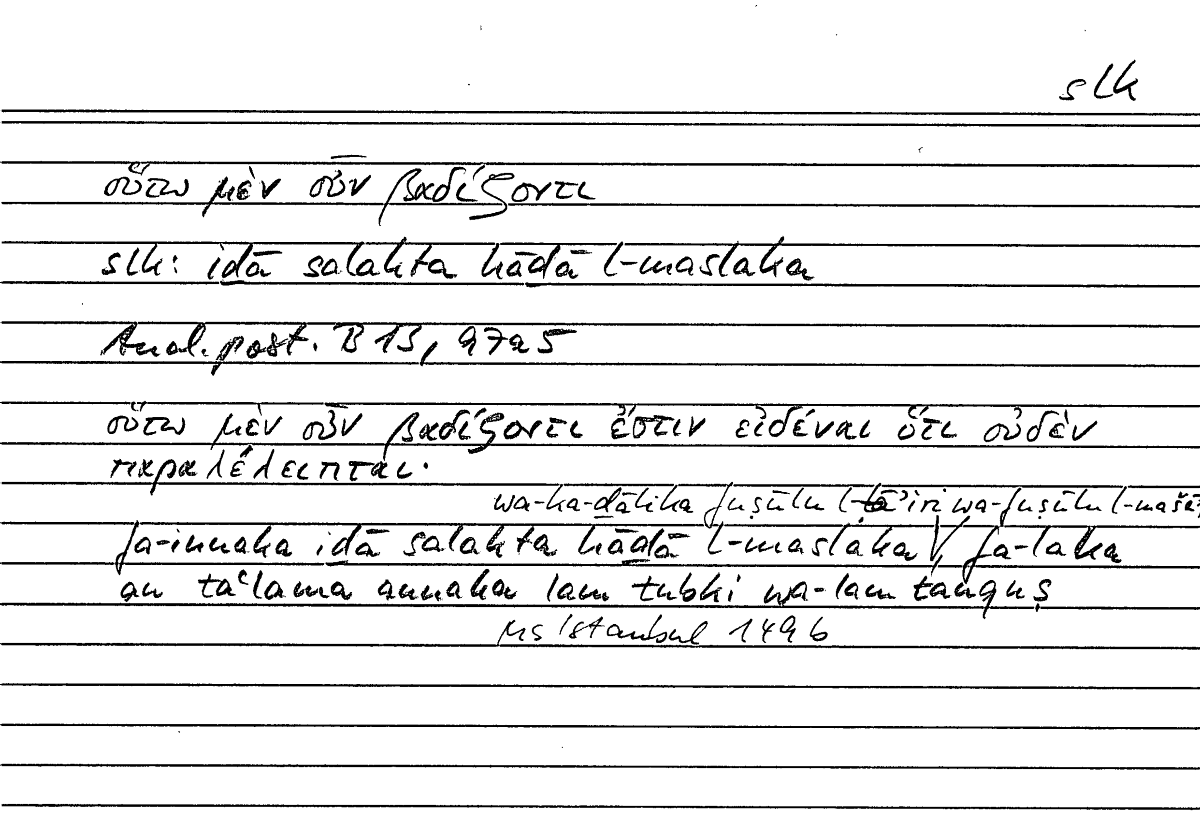 slk
οὕτω μὲν οὖν βαδίζοντι
slk: iḏā salakta hāḏā l-maslaka
Anal. post. B 13, 97a5
οὕτω μὲν οὖν βαδίζοντι ἔστιν εἰδέναι ὅτι οὐδὲν
παραλέλειπται·
wa-ka-ḏālika fuṣūlu l-ṭāʾiri wa-fuṣūlu
fa-innaka iḏā salakta hāḏā l-maslaka, fa-laka
an taʿlama annaka lam tubki wa-lam tanquṣ
MS Istanbul 149b